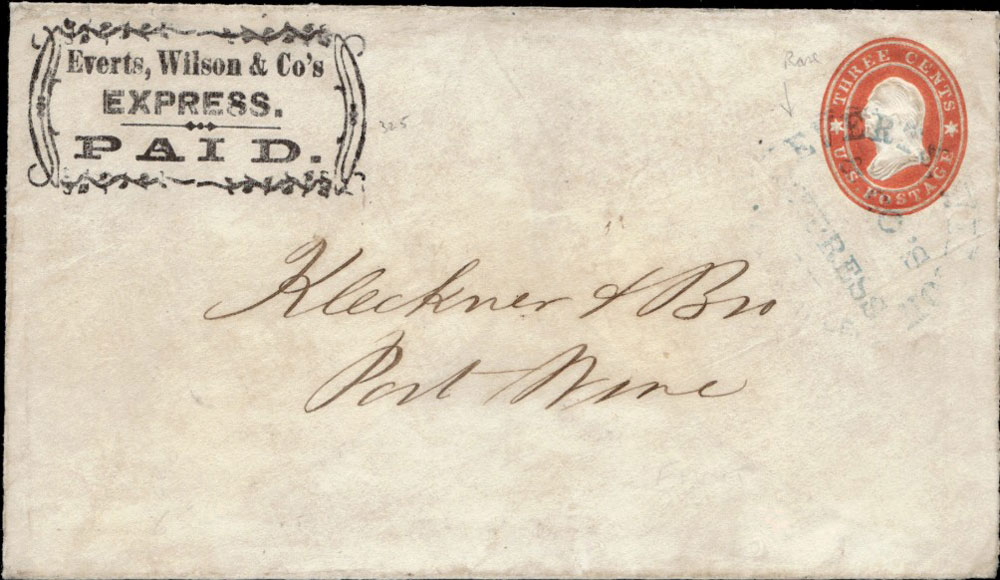 Everts, Wilson & Co's
EXPRESS.
PAID.
325
Rare
THREE CENTS
U.S. POSTAGE
Kleckner & Bro
Port Wine